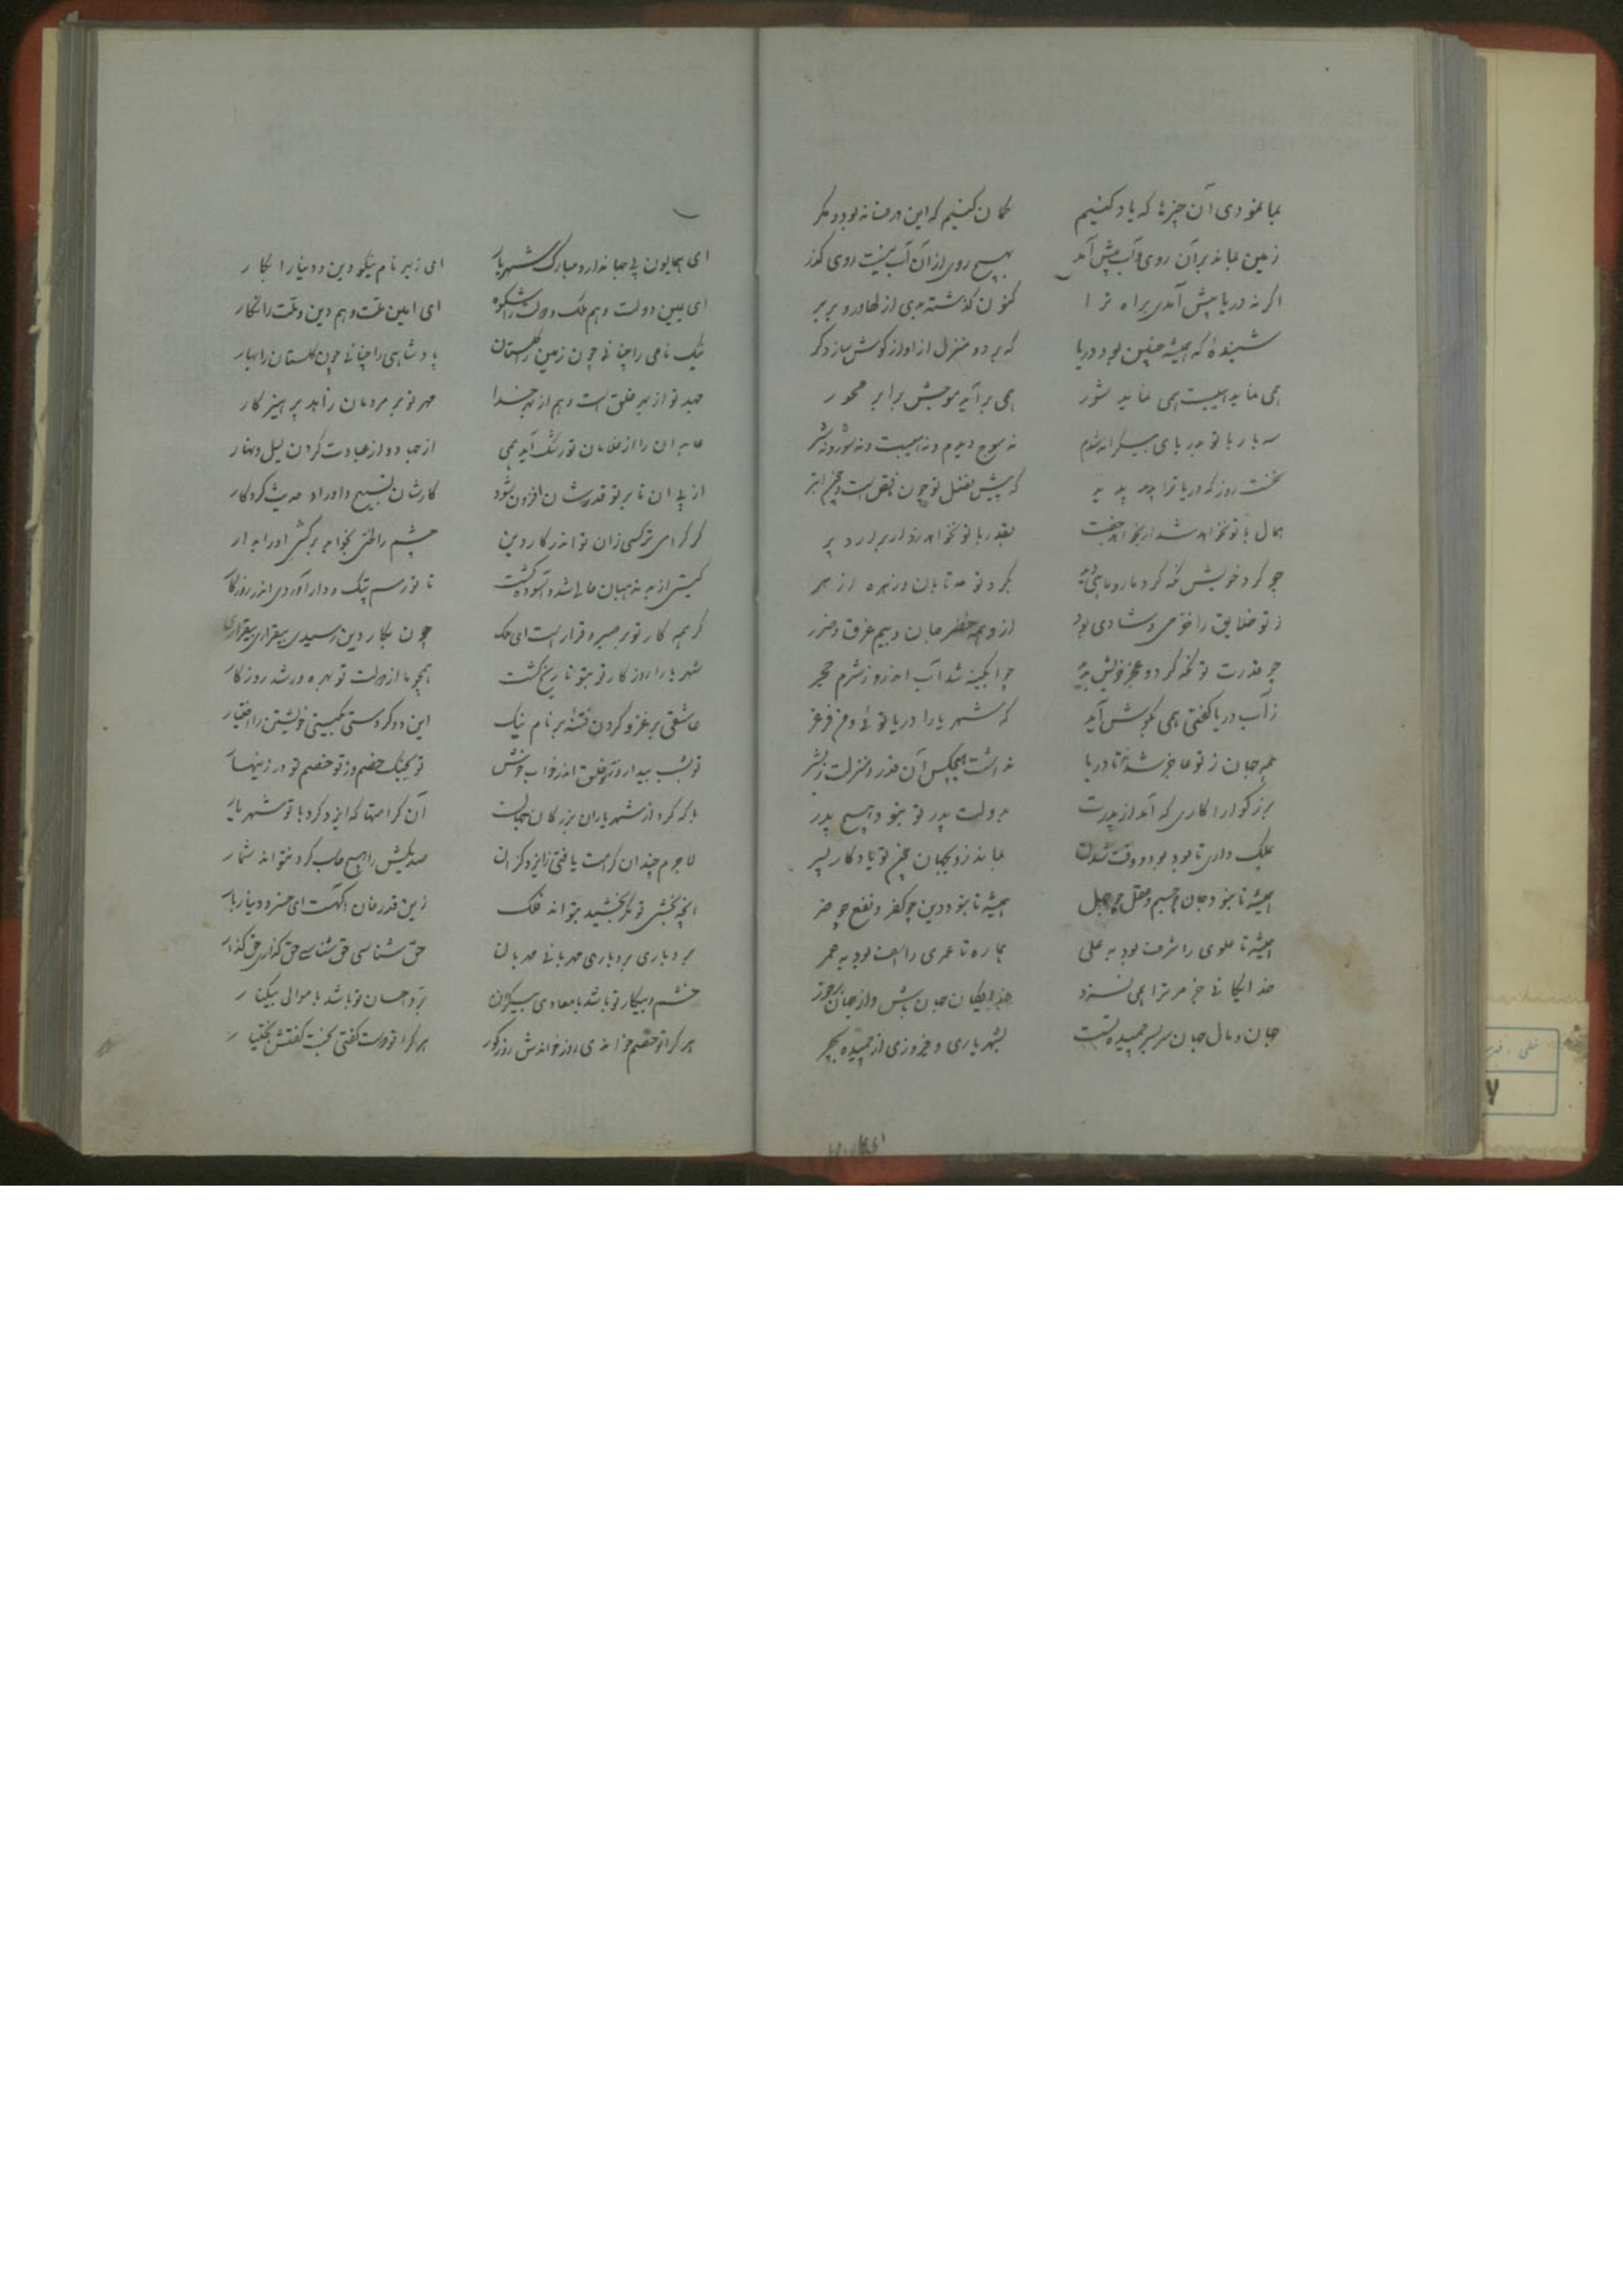 بما نمودی آن چیزها که یاد کنیم گمان کنیم که این در فسانه بود و مگر
زمین بماند برآن روی و آب پیش آمد بهیچ روی ازان آب نیست روی گذر
اگر نه دریا پیش آمدی براه ترا کنون گذشته بدی از و بربر
شنیدهٔ که همیشه چنین بود دریا که بر دو منزل از آواز گوش سازد کر
همی نماید هیبت همی نماید شور همی برآید موجش برابر محور
سه بار با تو بدریای بیکرانه شدم نه موج دیدم و نه هیبت و نه شور و نه شر
نخست روز که دریا ترا بدید بدید که پیش فضل تو چون ناقص است و ابتر
بمال با تو نخواهد شد ار بخواهد جفت بقدر با تو نخواهد زد ار برارد پر
چو گرد خویش نگه کرد مار و ماهی دید بگرد تو مه تابان و زهره ازهر
ز تو خلایق را خرمی و شادی بود از و همه خطر جان و بیم غرق و ضرر
چو قدرت تو نگه کرد و عجز خویش بدید چو آبگینه شد آب اندرو ز شرم حجر
ز آب دریا گفتی همی بگوش آید که شهریارا دریا توئی و من فرغر
همه جهان ز تو عاجز شدند تا دریا نداشت هیچکس آن قدر و منزلت ز بشر
بزرگوارا کاری که آمد از پدرت بدولت پدر تو نبود هیچ پدر
بملک داری تا بود بود و وقت شدن بماند زو بجهان چون تو یادگار پسر
همیشه تا نبود جان چو جسم و عقل چو جهل همیشه تا نبود دین چو کفر و نفع چو ضر
همیشه تا علوی را شرف بود به علی هماره تا عمری را بود به عمر
خدایگانی جز مر ترا همی نسزد خدایگان جهان باش و از جهان برخور
جهان و مال جهان سربسر تست بشهریاری و فیروزی از بخور
ای همایون پی جهاندار و مبارک شهریار ای ز بیر نام نیکو دین و دنیا را بکار
ای یمین دولت و هم ملک و دولت را شکوه ای امین ملت و هم دین و ملت را نگار
نیک نامی را چنانی چون زمین را گلستان پادشاهی را چنانی چون گلستان را بهار
جهد تو از بهر خلق است و هم از بهر خدا مهر تو بر مردمان زاهد پرهیزکار
را از غلامان تو رشک آید همی از جهاد و از عبادت کردن لیل و نهار
از پی آن تا بر تو قدرشان افزون شود کارشان تسبیح و اوراد حدیث کردگار
گر گرامی تر کسی زان تو اندر کار دین چشم را لختی بخواباند برکشی او را بدار
گیتی از بد مذهبان خالی شد و آسوده گشت تا تو رسم نیک و دار آوردی اندر روزگار
گر همه کار تو بر صبر و قرار است ای ملک چون بکار دین رسیدی بیقراری بیقرار
شهریارا روزگار تو بتو تاریخ گشت همچو ما از دولت تو بهره ور شد روزگار
عاشقی بر غزو کردن فتنهٔ بر نام نیک این دو کردستی بگیتی خویشتن را اختیار
تو بشب بیدار وز تو خلق اندر خواب خوش تو بجنگ خصم وز تو خصم تو در زینهار
با که کرد از شهریاران بزرگان جهان آن کرامتها که ایزد کرد با تو شهریار
لاجرم چندان کرامت یافتی ز ایزد کزان صد یکش را هیچ حاسب کرد نتواند شمار
آنچه بخشی تو مگر بخشید نتواند فلک زین قدر خان آگهست ای خسرو دینار بار
بردباری بردباری مهربانی مهربان حق شناسی حق شناسی حق گذاری حق گذار
خشم و پیکار تو باشد با معادی بیکران بر و احسان تو باشد با موالی بیکنار
هر کرا تو خصم خواندی روز خواندش روزکور هر کرا تو دوست گفتی بخت گفتش بختیار